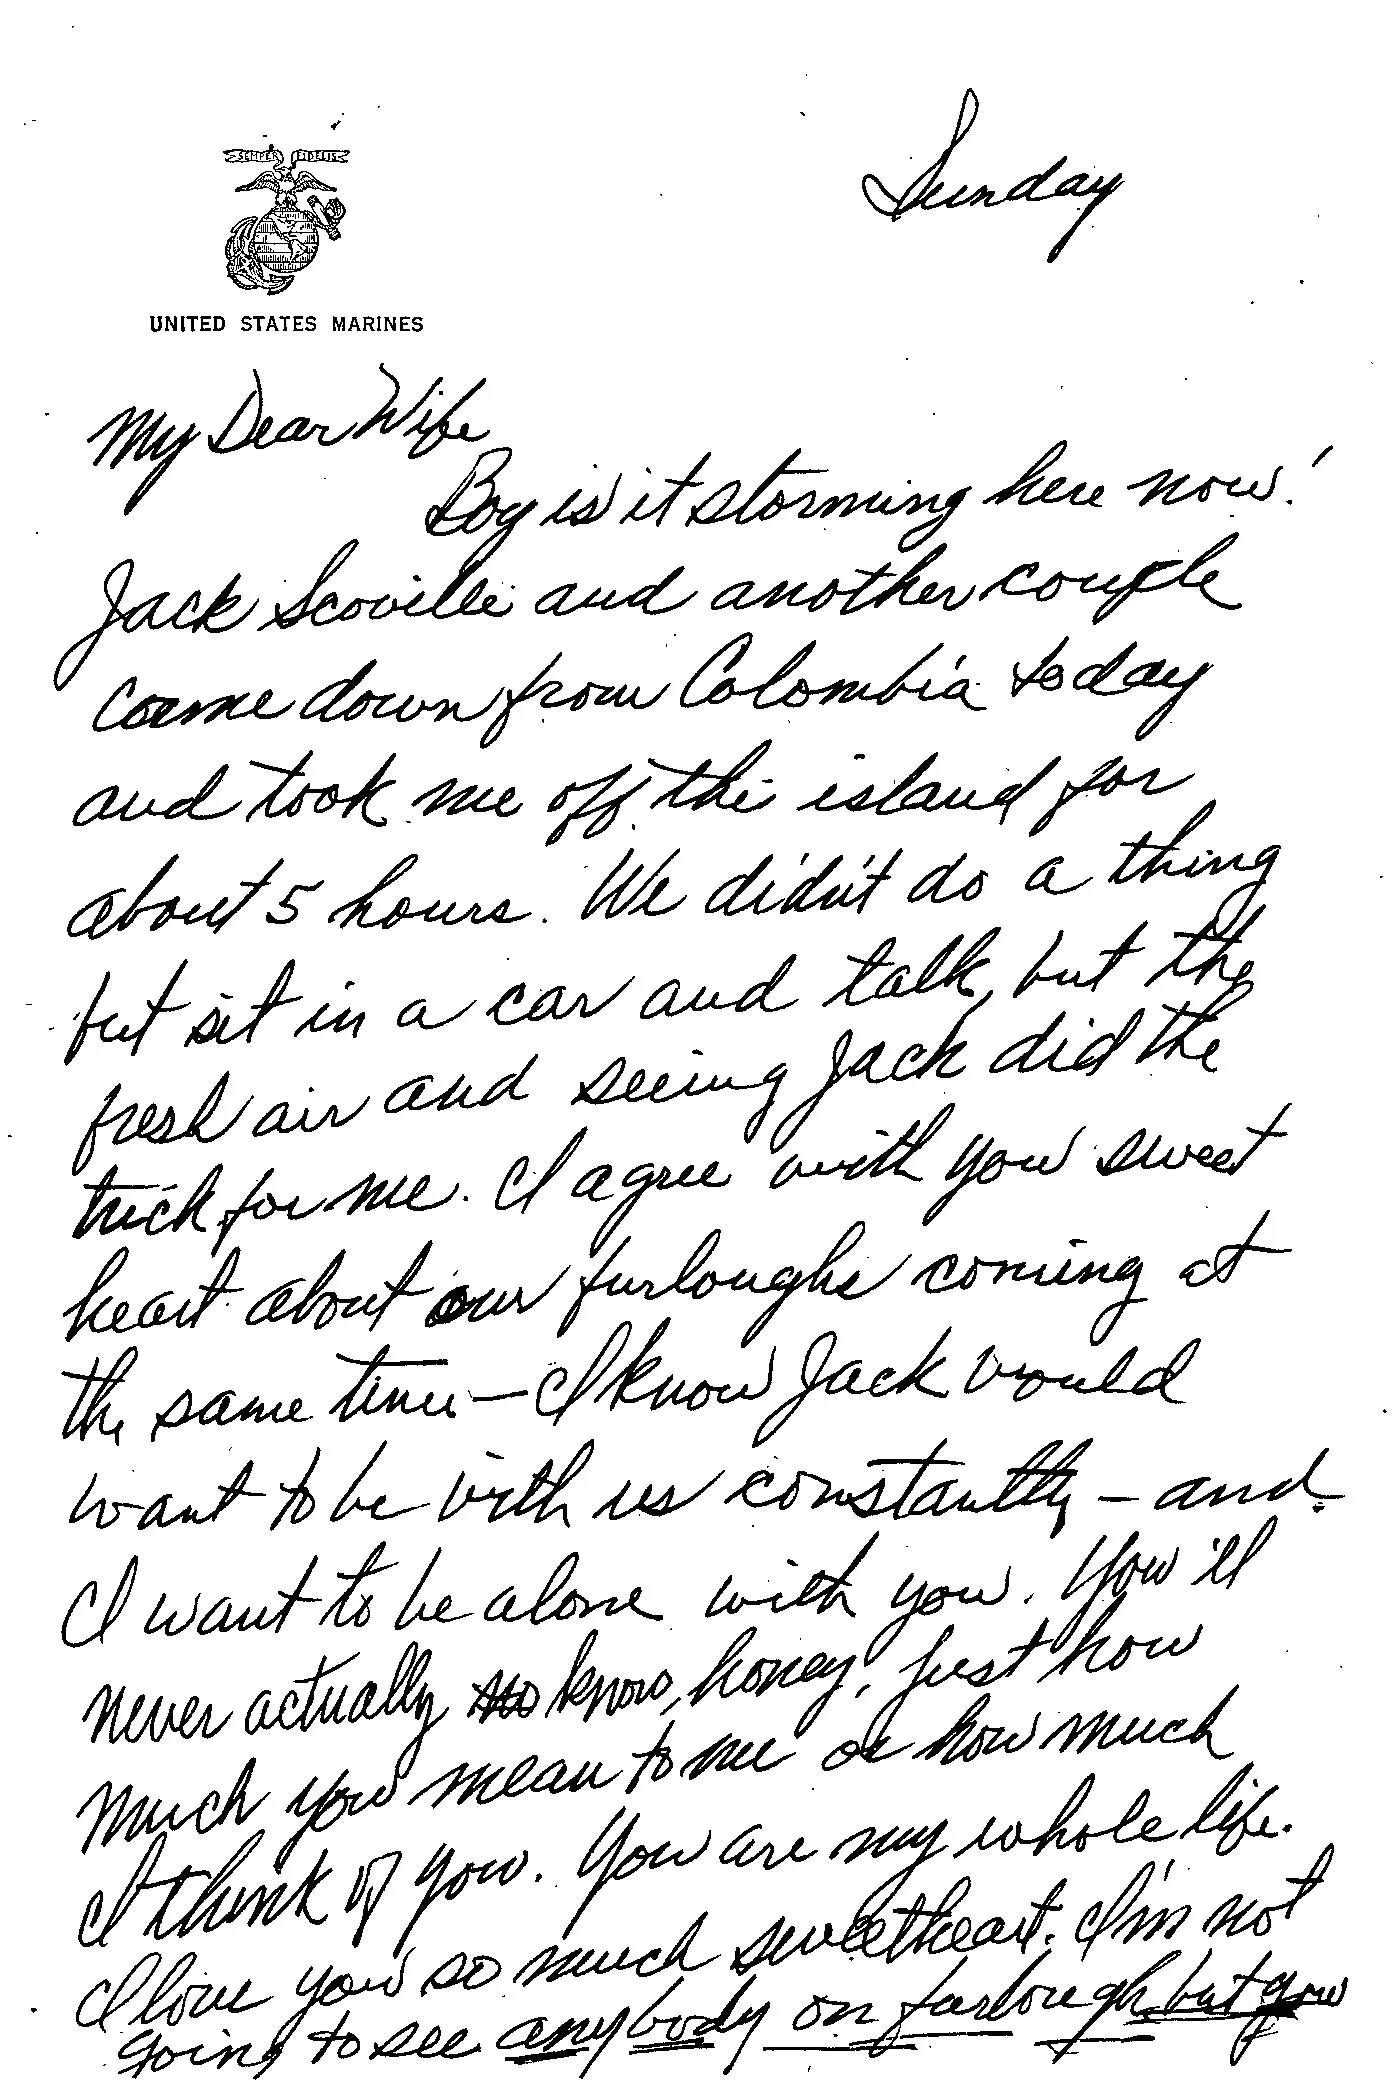 SEMPER FIDELIS
Sunday
UNITED STATES MARINES
My Dear Wife
Boy is it storming here now!
Jack Scoville and another couple
came down from Colombia today
and took me off the island for
about 5 hours. We didn't do a thing
but sit in a car and talk, but the
fresh air and seeing Jack did the
trick for me. I agree with you sweet
heart about our furloughs coming at
the same time — I know Jack would
want to be with us constantly — and
I want to be alone with you. You'll
never actually know, honey, just how
much you mean to me or how much
I think of you. You are my whole life.
I love you so much sweetheart. I'm not
going to see anybody on furlough but you